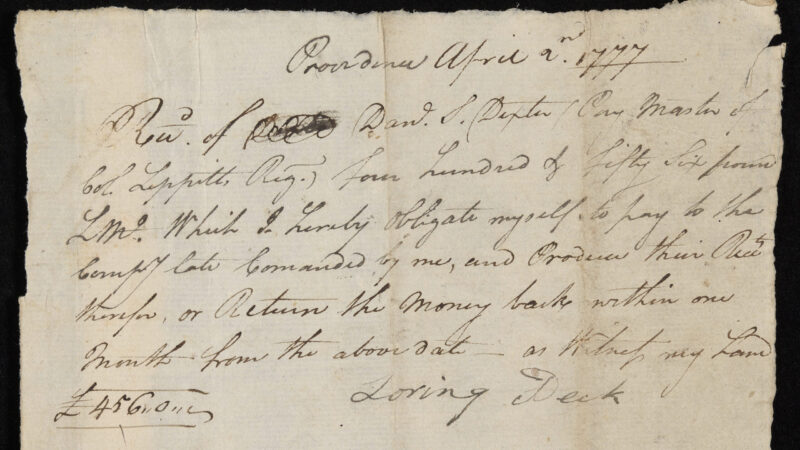 Providence April 2nd. 1777
Recd. of Danl. S. Dexter Pay Master of
Col. Lippitts Regt. four hundred & fifty Six pound
LMo. Which I hereby obligate myself to pay to the
Compy late Comanded by me, and Produce their Rect
therefor, or Return the Money back within one
Month from the above date — as Witness my hand
£456..0..
Loring Peck